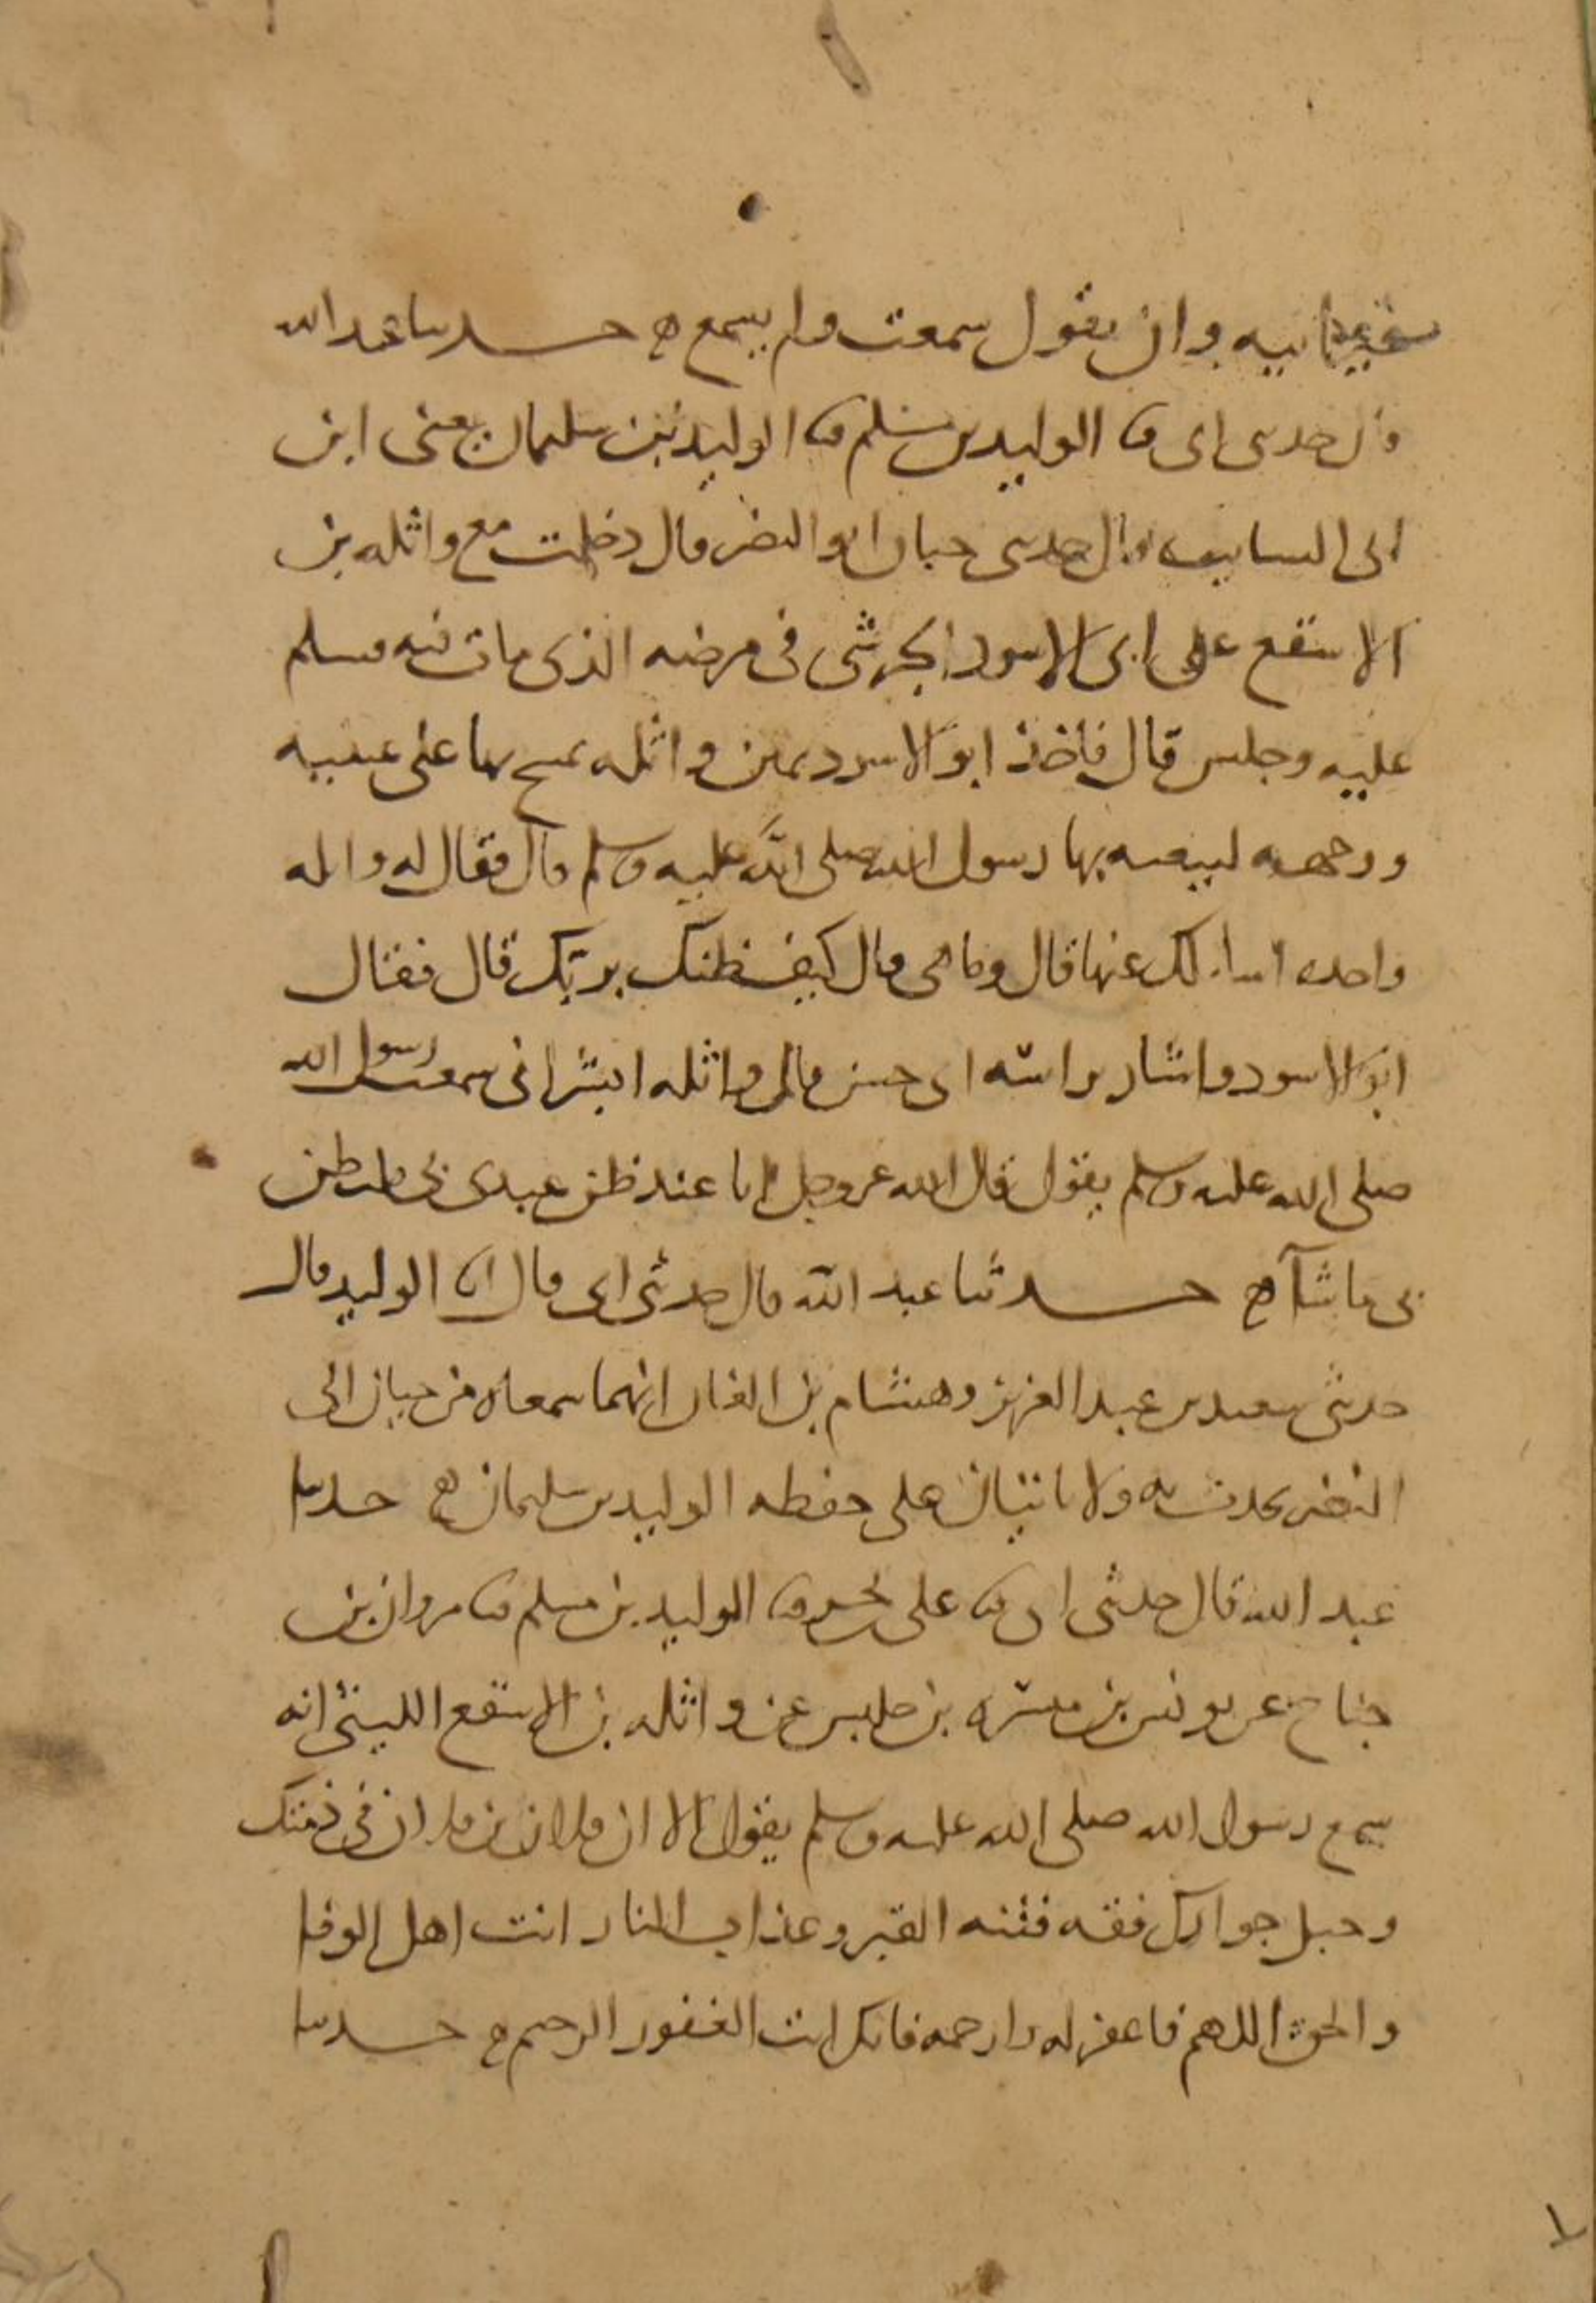 وان يقول سمعت ولم يسمع ه حدثنا عبد الله
قال حدثني ابي ثنا الوليد بن مسلم ثنا الوليد بن سليمان يعني ابن
ابي السايب قال حدثني حيان ابو النضر قال دخلت مع واثله بن
الاسقع على ابي الاسود الجرشي في مرضه الذي مات فيه فسلم
عليه وجلس قال فاخذ ابو الاسود يمين واثله يمسح بها على عينيه
ووجهه لبيعته بها رسول الله صلى الله عليه وسلم قال فقال له واثله
واحده اساءلك عنها قال وما هي قال كيف ظنك بربك قال فقال
ابو الاسود واشار براسه اي حسن قال واثله ابشر اني سمعت رسول الله
صلى الله عليه وسلم يقول قال الله عز وجل انا عند ظن عبدي بي فليظن
بي ما شآ ه حدثنا عبد الله قال حدثني ابي قال ثنا الوليد قال
حدثني سعيد بن عبد العزيز وهشام بن الغاز انهما سمعاه من حيان ابي
النضر يحدث به ولا ياتيان على حفظه الوليد بن سليمان ه حدثنا
عبد الله قال حدثني ابي ثنا علي بن بحر ثنا الوليد بن مسلم ثنا مروان بن
جناح عن يونس بن ميسره بن حلبس عن واثله بن الاسقع الليثي انه
سمع رسول الله صلى الله عليه وسلم يقول الا ان فلان بن فلان في ذمتك
وحبل جوارك فقه فتنه القبر وعذاب النار انت اهل الوفا
والحق اللهم فاغفر له وارحمه فانك انت الغفور الرحيم ه حدثنا